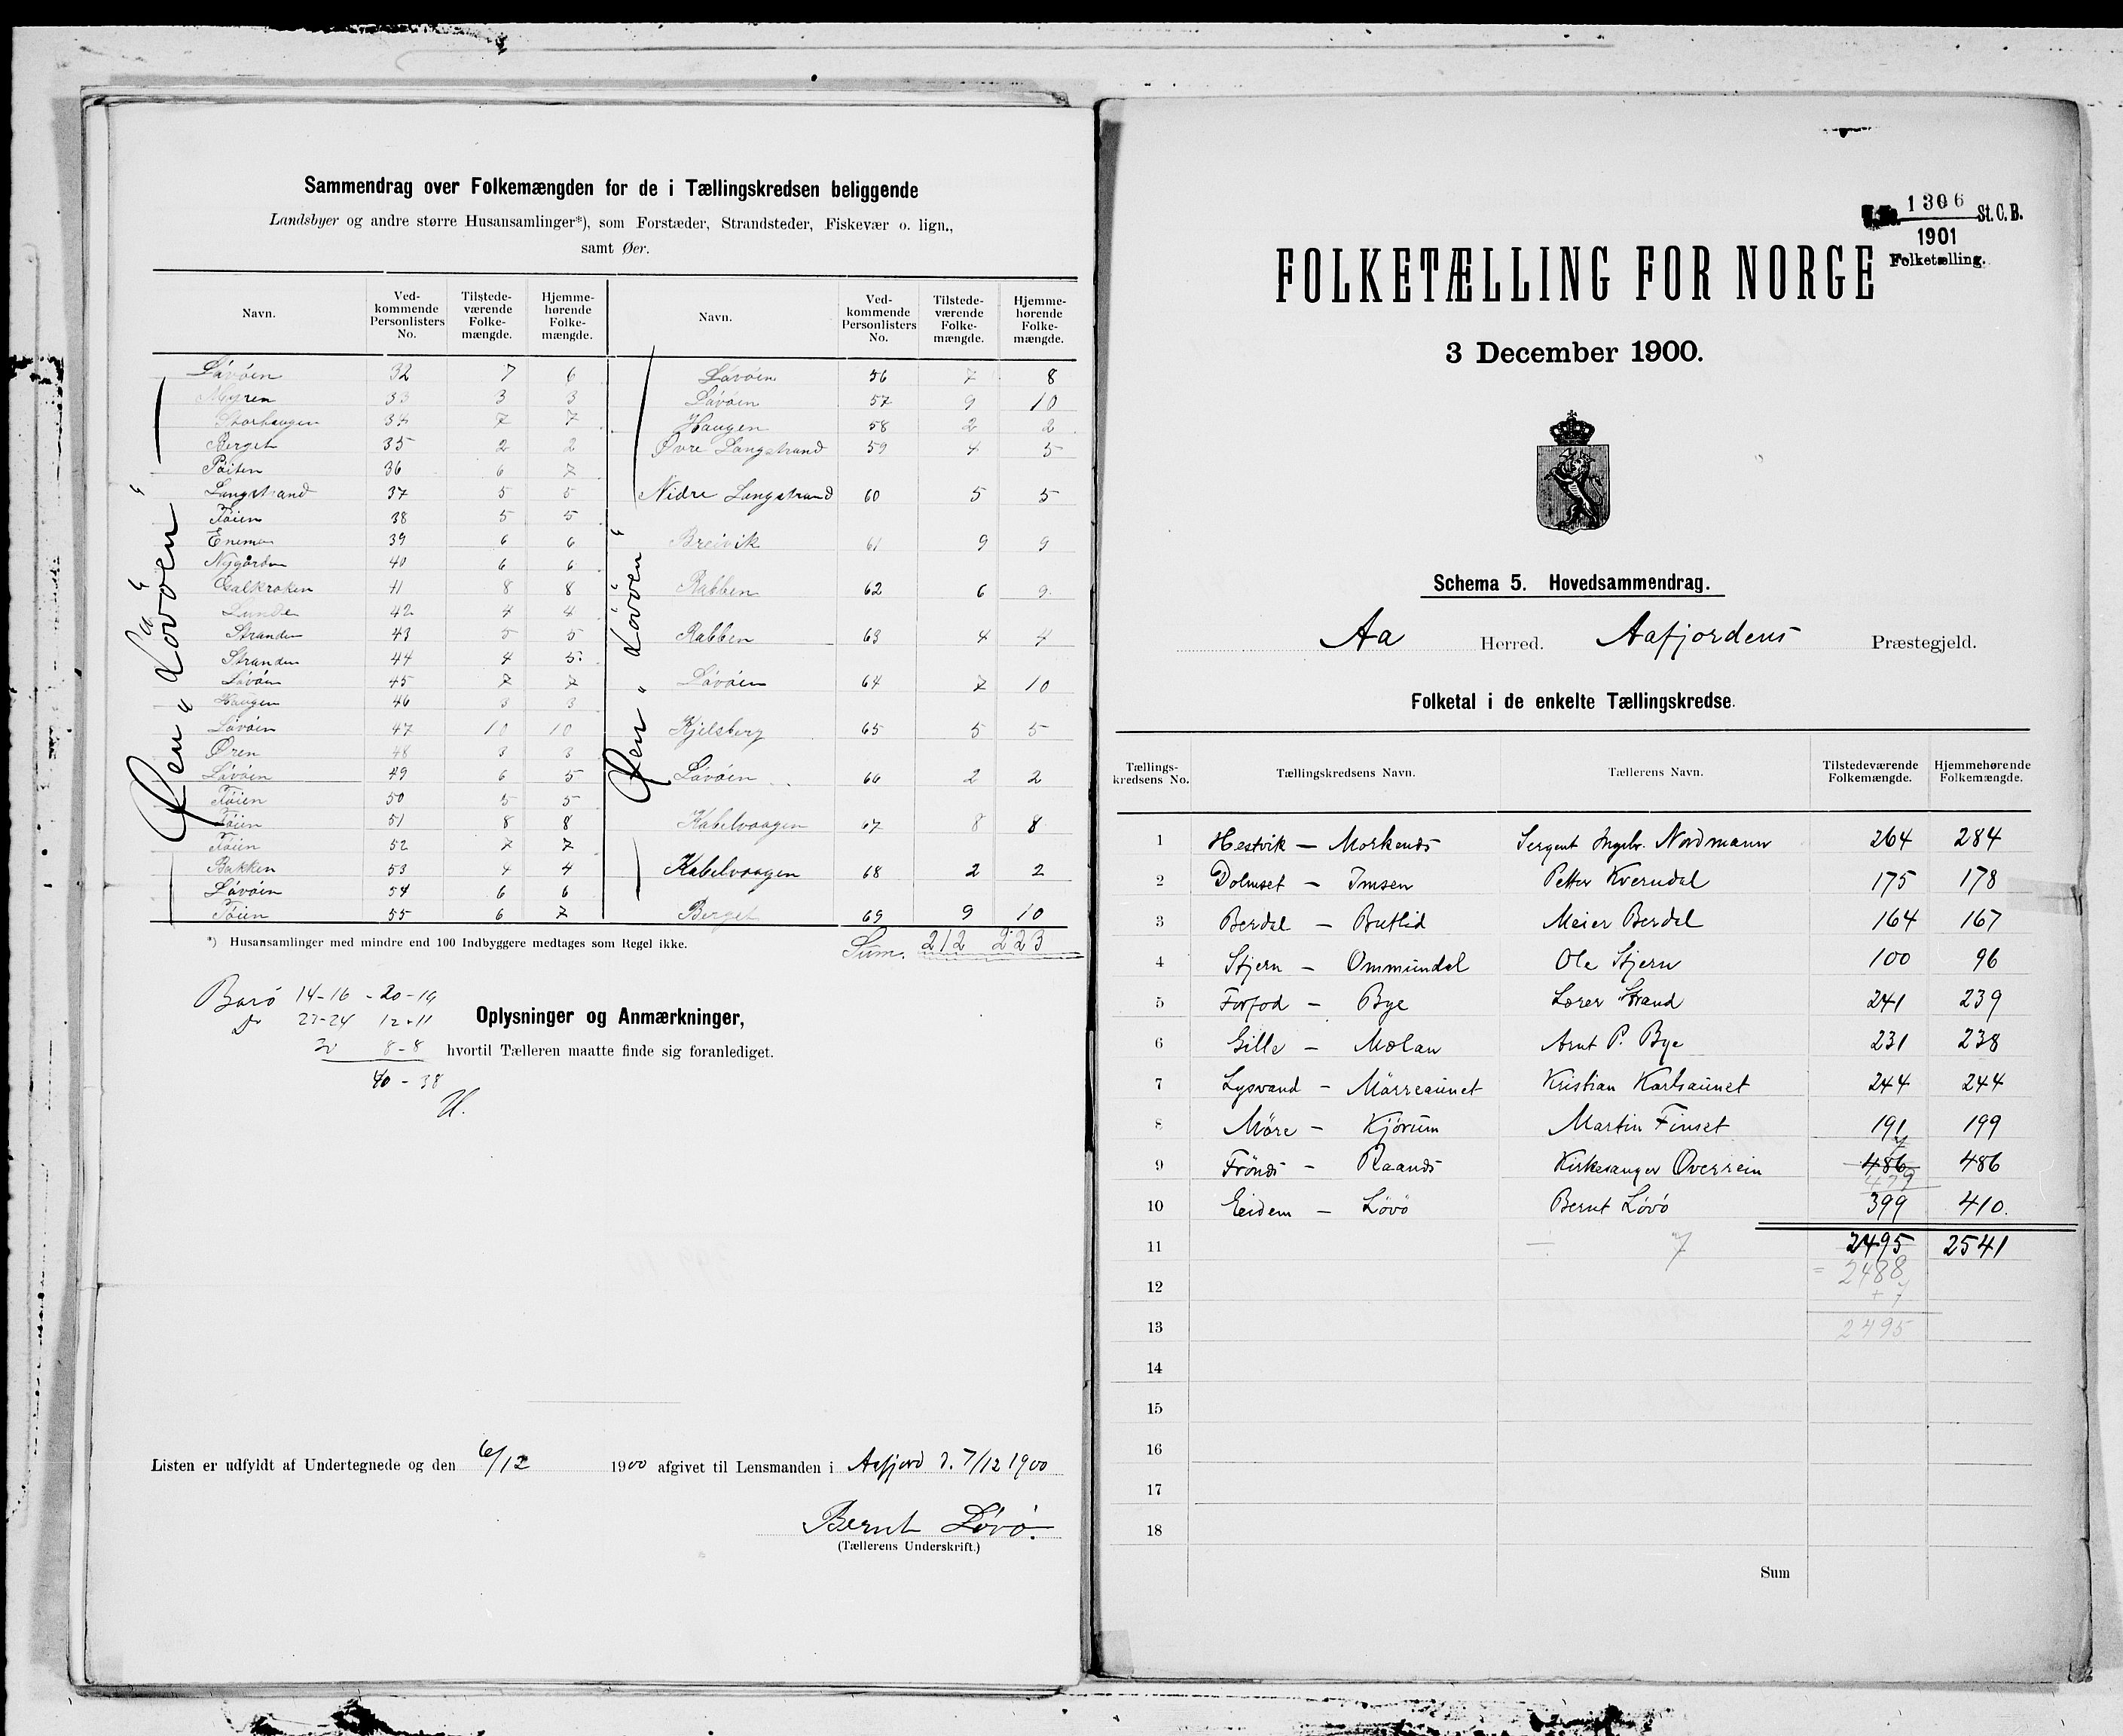 Sammendrag over Folkemængden for de i Tællingskredsen beliggende
Landsbyer og andre større Husansamlinger*), som Forstæder, Strandsteder, Fiskevær o. lign.,
samt Øer.
Navn. Ved-kommende Personlisters No. Tilstede-værende Folke-mængde. Hjemme-hørende Folke-mængde.
Øen "Løvöen"
Løvöen 32 7 6
Myren 33 3 3
Storhaugen 34 7 7
Berget 35 2 2
36 6 7
Langstrand 37 5 5
Tøien 38 5 5
Enemo 39 6 6
Nygården 40 6 6
Galkroken 41 8 8
Lunde 42 4 4
Stranden 43 5 5
Stranden 44 4 5
Løvöen 45 7 7
Haugen 46 3 3
Løvöen 47 10 10
Øren 48 3 3
Løvöen 49 6 5
Tøien 50 5 5
Tøien 51 8 8
Tøien 52 7 7
Bakken 53 4 4
Løvöen 54 6 6
Tøien 55 6 7
Navn. Ved-kommende Personlisters No. Tilstede-værende Folke-mængde. Hjemme-hørende Folke-mængde.
Øen "Løvöen"
Løvöen 56 7 8
Løvöen 57 9 10
Haugen 58 2 2
Øvre Langstrand 59 4 5
Nidre Langstrand 60 5 5
Breivik 61 9 9
Rabben 62 6 9
Rabben 63 4 4
Løvöen 64 7 10
Kjelsberg 65 5 5
Løvöen 66 2 2
Kabelvaagen 67 8 8
Kabelvaagen 68 2 2
Berget 69 9 10
Sum. 212 223
*) Husansamlinger med mindre end 100 Indbyggere medtages som Regel ikke.
Barö 14-16 - 20-19
23-24 12-11
30 8-8
40-38
Oplysninger og Anmærkninger,
hvortil Tælleren maatte finde sig foranlediget.
Listen er udfyldt af Undertegnede og den 6/12 1900 afgivet til Lensmanden i Aafjord d. 7/12 1900
Bernt Løvö.
(Tællerens Underskrift.)
1306 St. C. B.
1901
Folketælling.
FOLKETÆLLING FOR NORGE
3 December 1900.
Schema 5. Hovedsammendrag.
Aa Herred. Aafjordens Præstegjeld.
Folketal i de enkelte Tællingskredse.
Tællings-kredsens No. Tællingskredsens Navn. Tællerens Navn. Tilstedeværende Folkemængde. Hjemmehørende Folkemængde.
1 Hestvik — Morkends Sergent Ingebr. Nordmann 264 284
2 Dolmset — Imsen Petter Kverndal 175 178
3 Berdal — Butlid Meier Berdal 164 167
4 Stjern — Ommundal Ole Stjern 100 96
5 Forfod — Bye Lærer Strand 241 239
6 Gilde — Mælan Arnt P. Bye 231 238
7 Lysvand — Mörreaunet Kristian Karlsaunet 244 244
8 Møre — Kjörum Martin Finset 191 199
9 Frönds — Raands Kirkesanger Overrein 486 486
479
10 Eidem — Løvö Bernt Løvö 399 410.
11 — 7 2495 2541
= 2488
12 + 7
13 2495
14
15
16
17
18
Sum